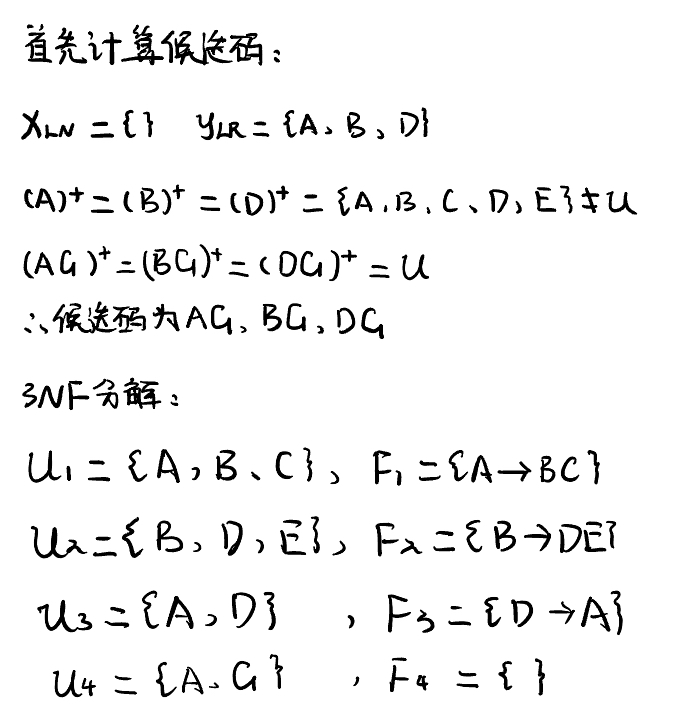 首先计算候选码：
X_LN = { } Y_LR = {A、B、D}
(A)⁺ = (B)⁺ = (D)⁺ = {A、B、C、D、E} ≠ U
(AG)⁺ = (BG)⁺ = (DG)⁺ = U
∴候选码为AG、BG、DG
3NF分解：
U₁ = {A、B、C}、F₁ = {A→BC}
U₂ = {B、D、E}、F₂ = {B→DE}
U₃ = {A、D} 、F₃ = {D→A}
U₄ = {A、G} 、F₄ = { }